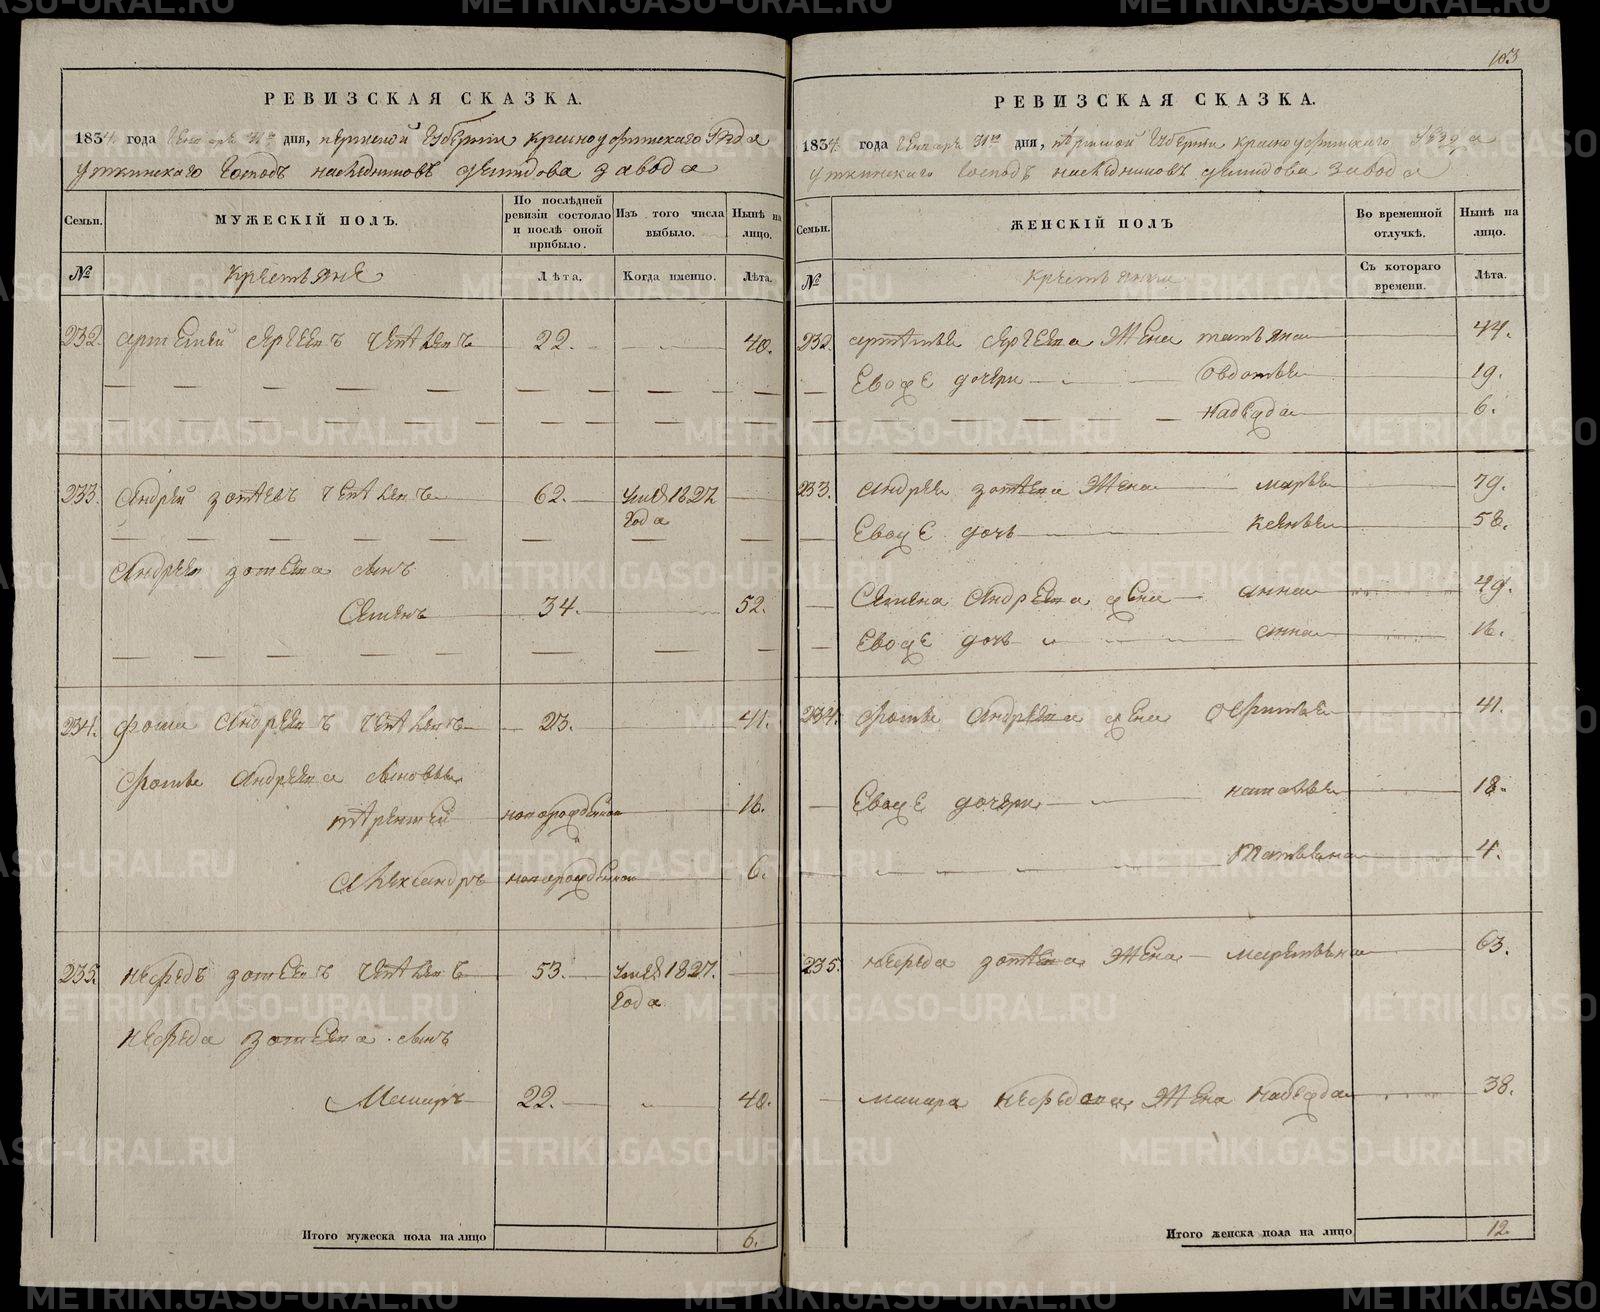 103
РЕВИЗСКАЯ СКАЗКА.
1834. года Генваря 31го дня, пермской Губернии красноуфимскаго Уезда
уткинскаго Господъ наследниковъ демидова завода
Семьи.
МУЖЕСКІЙ ПОЛЪ.
По послѣдней ревизіи состояло и послѣ оной прибыло.
Изъ того числа выбыло.
Нынѣ на лицо.
№
крестьяне
Лѣта.
Когда именно.
Лѣта.
232. артемей сергеевъ 22. 40.
233. андрей зотевъ 62. 1827
года
Андрея зотева сынъ
Семенъ 34. 52.
234. фома Андреевъ 23. 41.
Фомы Андреева сыновья
терентей новорожденной 16.
Александръ новорожденной 6.
235. нефедъ зотеевъ 53. 1827.
года
нефеда зотеева сынъ
Макаръ 22. 40.
Итого мужеска пола на лицо 6.
РЕВИЗСКАЯ СКАЗКА.
1834. года Генваря 31го дня, пермской Губернии красноуфимскаго уезда
уткинскаго Господъ наследниковъ демидова завода
Семьи.
ЖЕНСКІЙ ПОЛЪ
Во временной отлучкѣ.
Нынѣ на лицо.
№
крестьянки
Съ котораго времени.
Лѣта.
232. артемья сергеева Жена татьяна 44.
Евоже дочери овдотья 19.
надежда 6.
233. андрея зотеева Жена марья 79.
Евоже дочь 58.
Семена Андреева жена анна 49.
Евоже дочь анна 16.
234. Фомы Андреева жена офимья 41.
Евоже дочери наталья 18.
Татьяна 4.
235. нефеда зотеева Жена маремьяна 63.
макара нефедова Жена надежда 38.
Итого женска пола на лицо 12.
METRIKI.GASO-URAL.RU